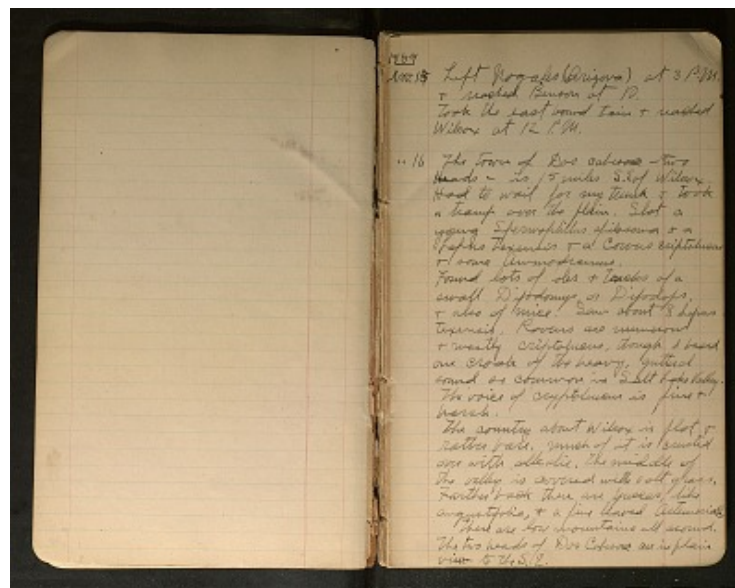 1889
Nov. 15 Left Nogales (Arizona) at 3 P.M.
+ reached Benson at 10.
Took the east bound train + reached
Wilcox at 12 P.M.
" 16 The town of Dos Cabezas - two
Heads - is 15 miles S.E. of Wilcox.
Had to wait for my trunk + took
a tramp over the plain. Shot a
young Spermophilus + a
Lepus texensis + a Corvus criptoleucus
+ some Ammodramus.
Found lots of holes + tracks of a
small Dipodomys or Dipodops,
+ also of mice. Saw about 3 Lepus
texensis. Ravens are numerous
+ mostly criptoleucus, though I heard
one croak of the heavy, guttural
sound so common in Salt Lake Valley.
The voice of cryptoleucus is fine +
harsh.
The country about Wilcox is flat +
rather bare, much of it is crusted
over with alkali. The middle of
the valley is covered with salt grass.
Farther back there are yuccas, like
angustifolia, + a fine leaved Artemisia.
There are low mountains all around.
The two heads of Dos Cabezas are in plain
view to the S.E.